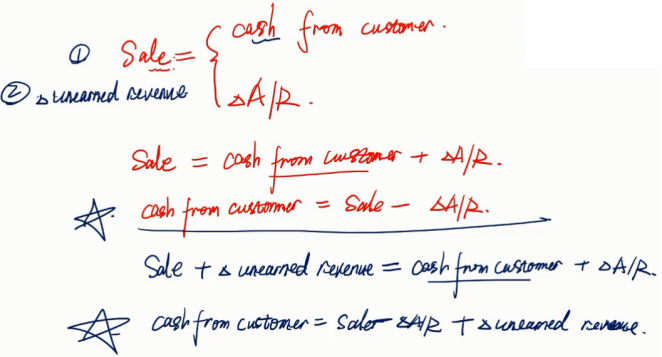 ① Sale = { cash from customer.
② Δ unearned revenue ΔA/R.
Sale = cash from customer + ΔA/R.
☆. cash from customer = Sale − ΔA/R.
Sale + Δ unearned revenue = cash from customer + ΔA/R.
☆ cash from customer = Sale − ΔA/R + Δ unearned revenue.